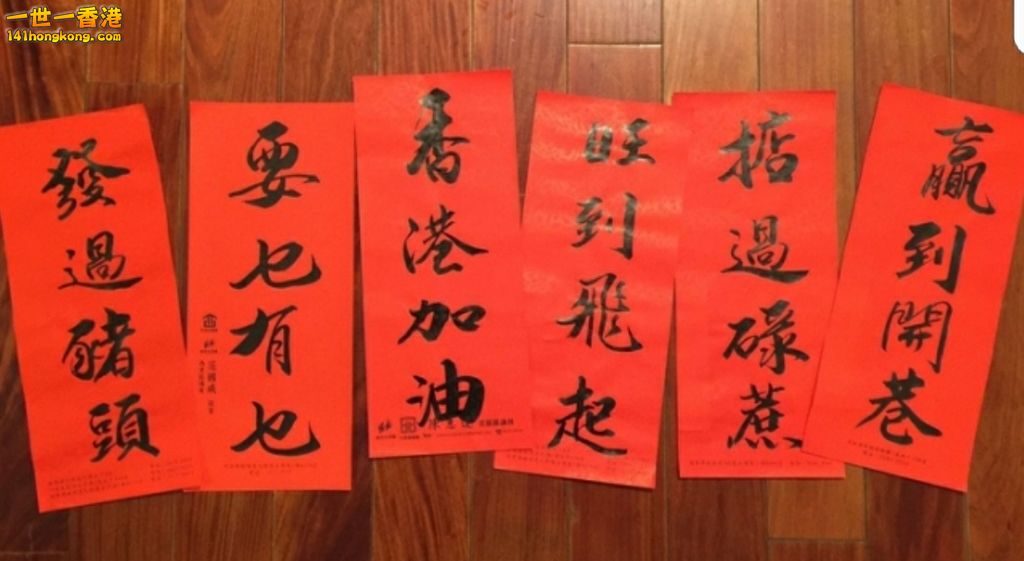 一世一香港
141hongkong.com
發過豬頭
要乜有乜
香港加油
旺到飛起
掂過碌蔗
贏到開巷
范國威